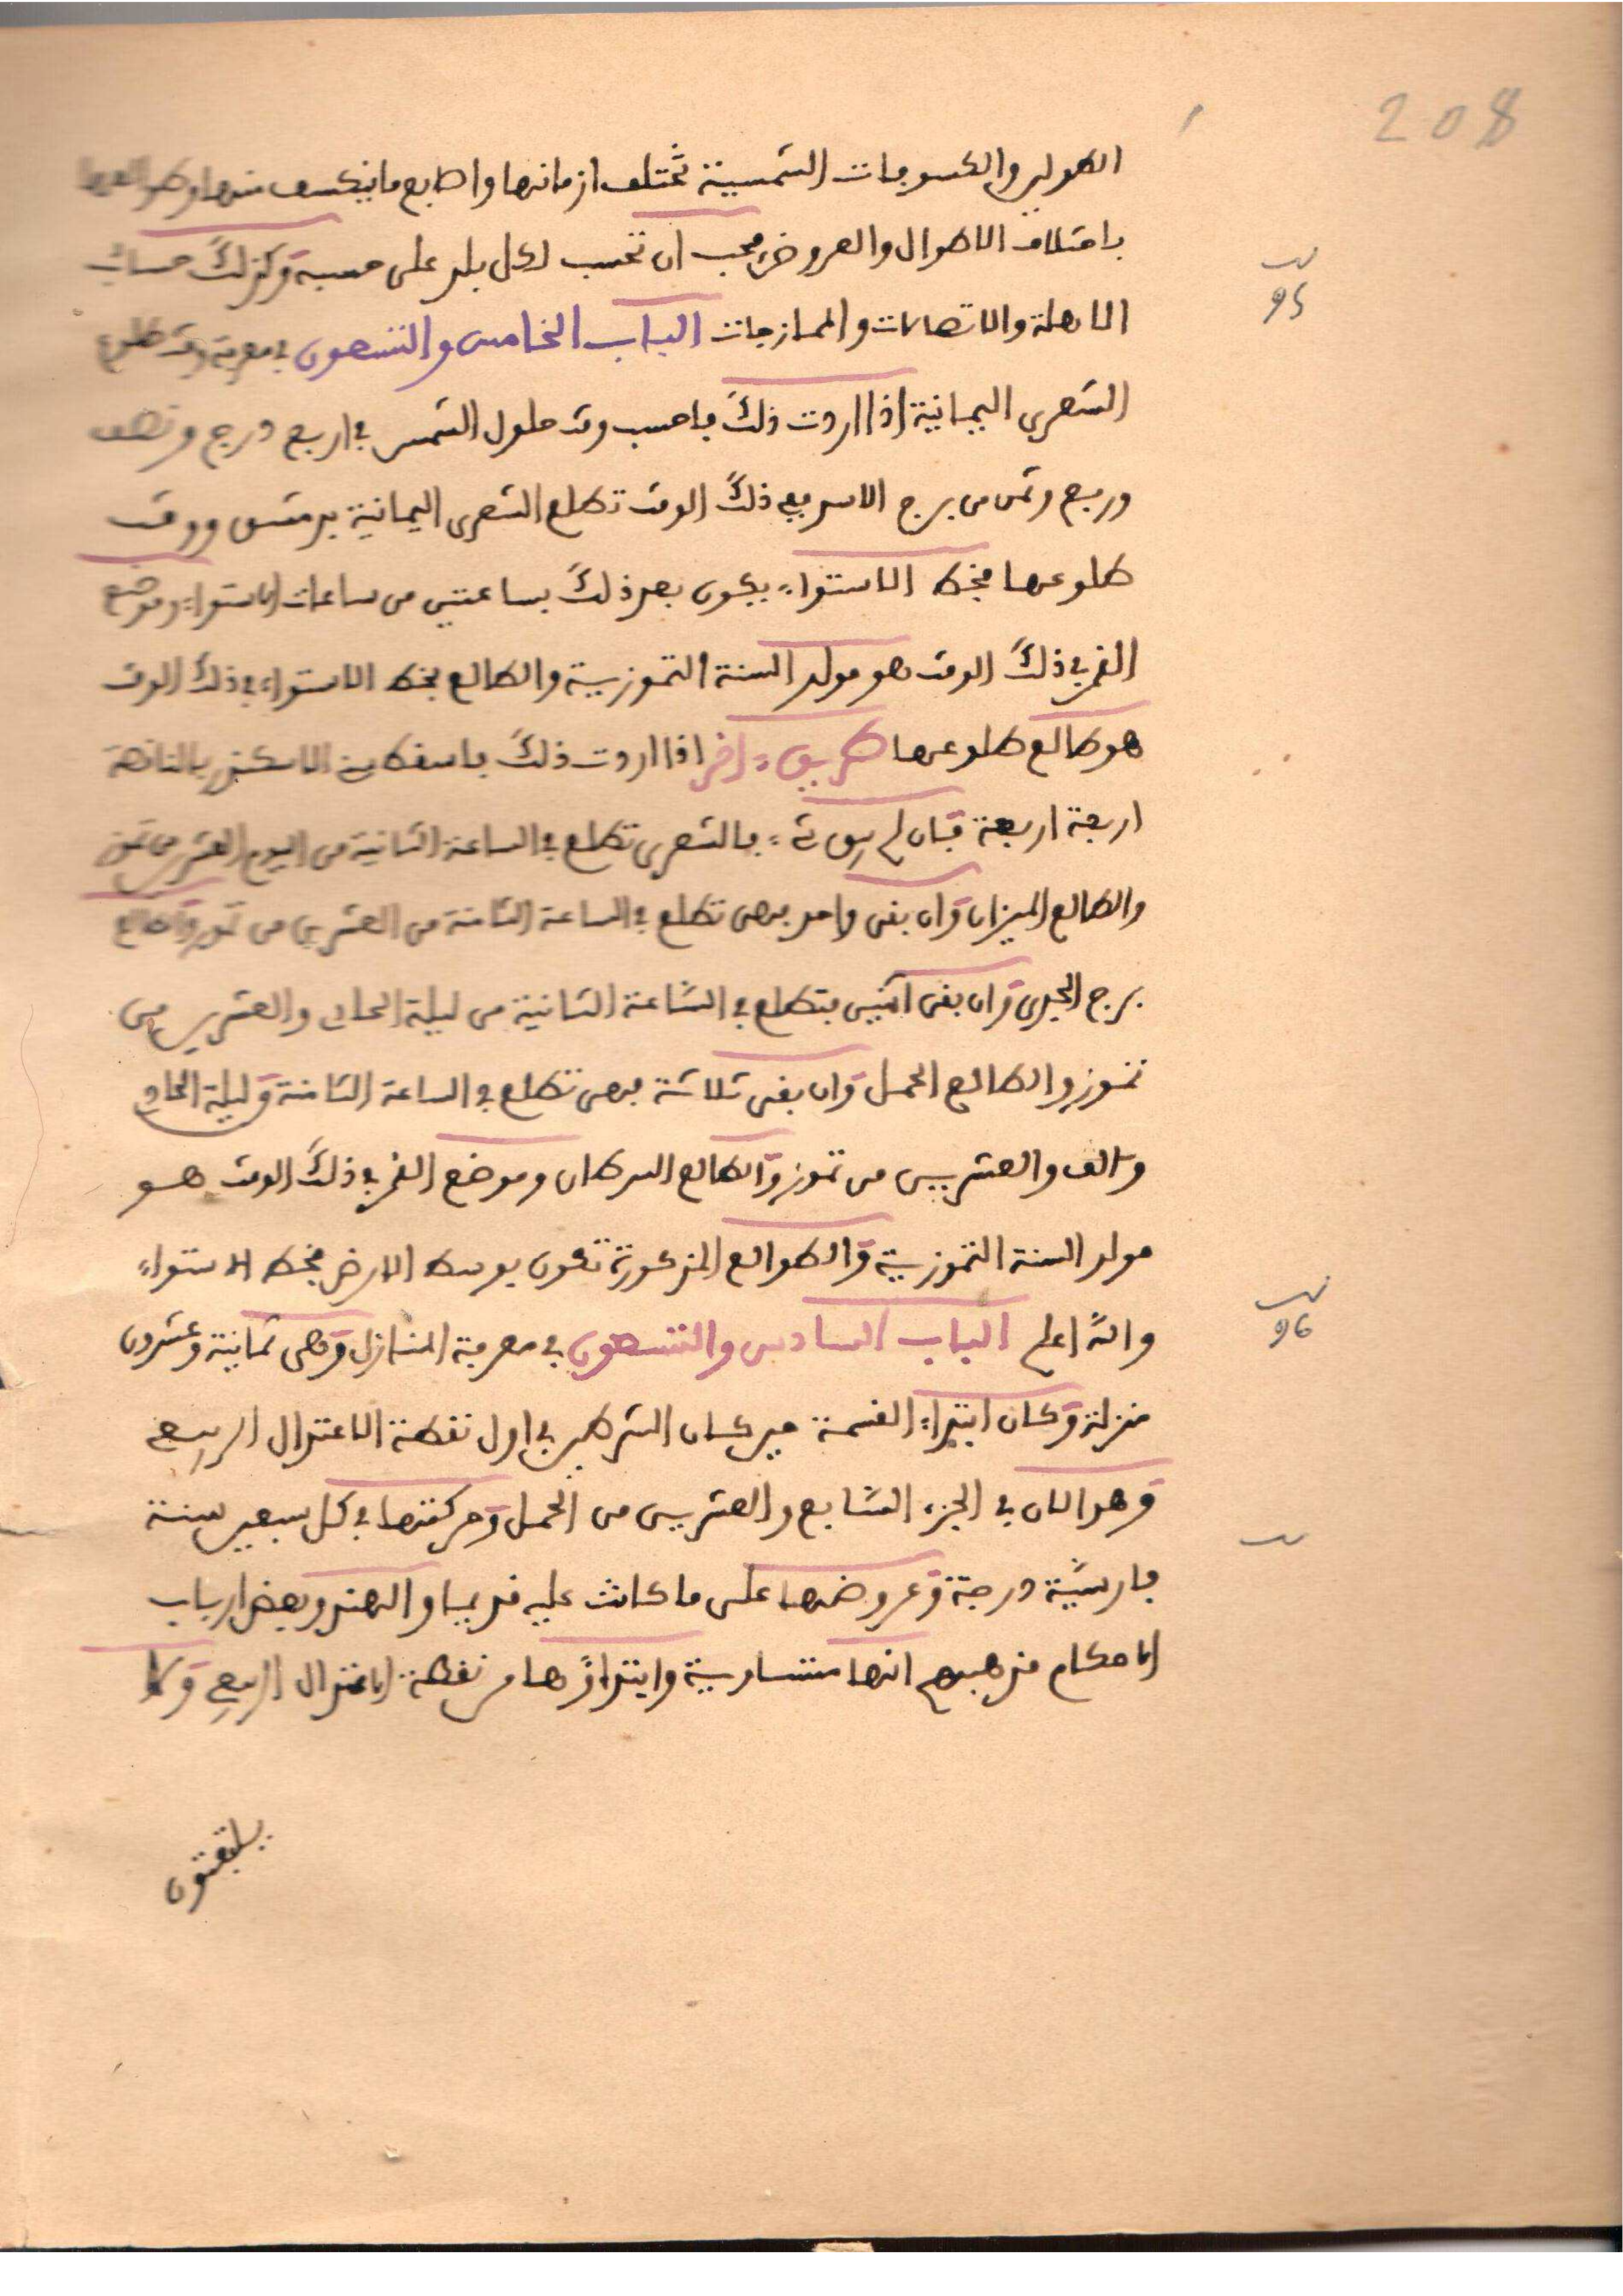 208
الطول والكسوفات الشمسية تختلف ازمانها واصابع ما ينكسف منها
باختلاف الاطوال والعروض فيجب ان تحسب لكل بلد على حسبه وكذلك حساب
ب 95
الاهلة والاتصالات والممازجات الباب الخامس والتسعون في معرفة وقت طلوع
الشعرى اليمانية اذا اردت ذلك فاحسب وقت حلول الشمس في اربع درج ونصف
وربع وثمن من برج الاسد ففي ذلك الوقت تطلع الشعرى اليمانية بدمشق ووقت
طلوعها بخط الاستواء يكون بعد ذلك بساعتين من ساعات الاستواء وموضع
القمر في ذلك الوقت هو مولد السنة التموزية والطالع بخط الاستواء في ذلك الوقت
هو طالع طلوعها طريق ءاخر اذا اردت ذلك فاسقط سني الاسكندر الناقصة
اربعة اربعة فان لم يبق شيء فالشعرى تطلع في الساعة الثانية من اليوم العشرين من تموز
والطالع الميزان وان بقى واحد فهى تطلع في الساعة الثامنة من العشرين من تموز والطالع
برج الجدى وان بقى اثنين فتطلع في الساعة الثانية من ليلة الحادي والعشرين من
تموز والطالع الحمل وان بقى ثلاثة فهى تطلع في الساعة الثامنة وليلة الحادي
والعشريين من تموز والطالع السرطان وموضع القمر في ذلك الوقت هو
مولد السنة التموزية والطوالع المذكورة تكون بوسط الارض بخط الاستواء
ب 96
والله اعلم الباب السادس والتسعون في معرفة المنازل وهى ثمانية وعشرون
منزلة وكان ابتداء القسمة حين كان الشرطين في اول نقطة الاعتدال الربيع
وهو الان في الجزء السابع والعشريين من الحمل وحركتها في كل سبعين سنة
فارسية درجة وعروضها على ما كانت عليه قديما والهند وبعض ارباب
الاحكام مذهبهم انها متساوية وابتداؤها من نقطة الاعتدال الربيعي وكا